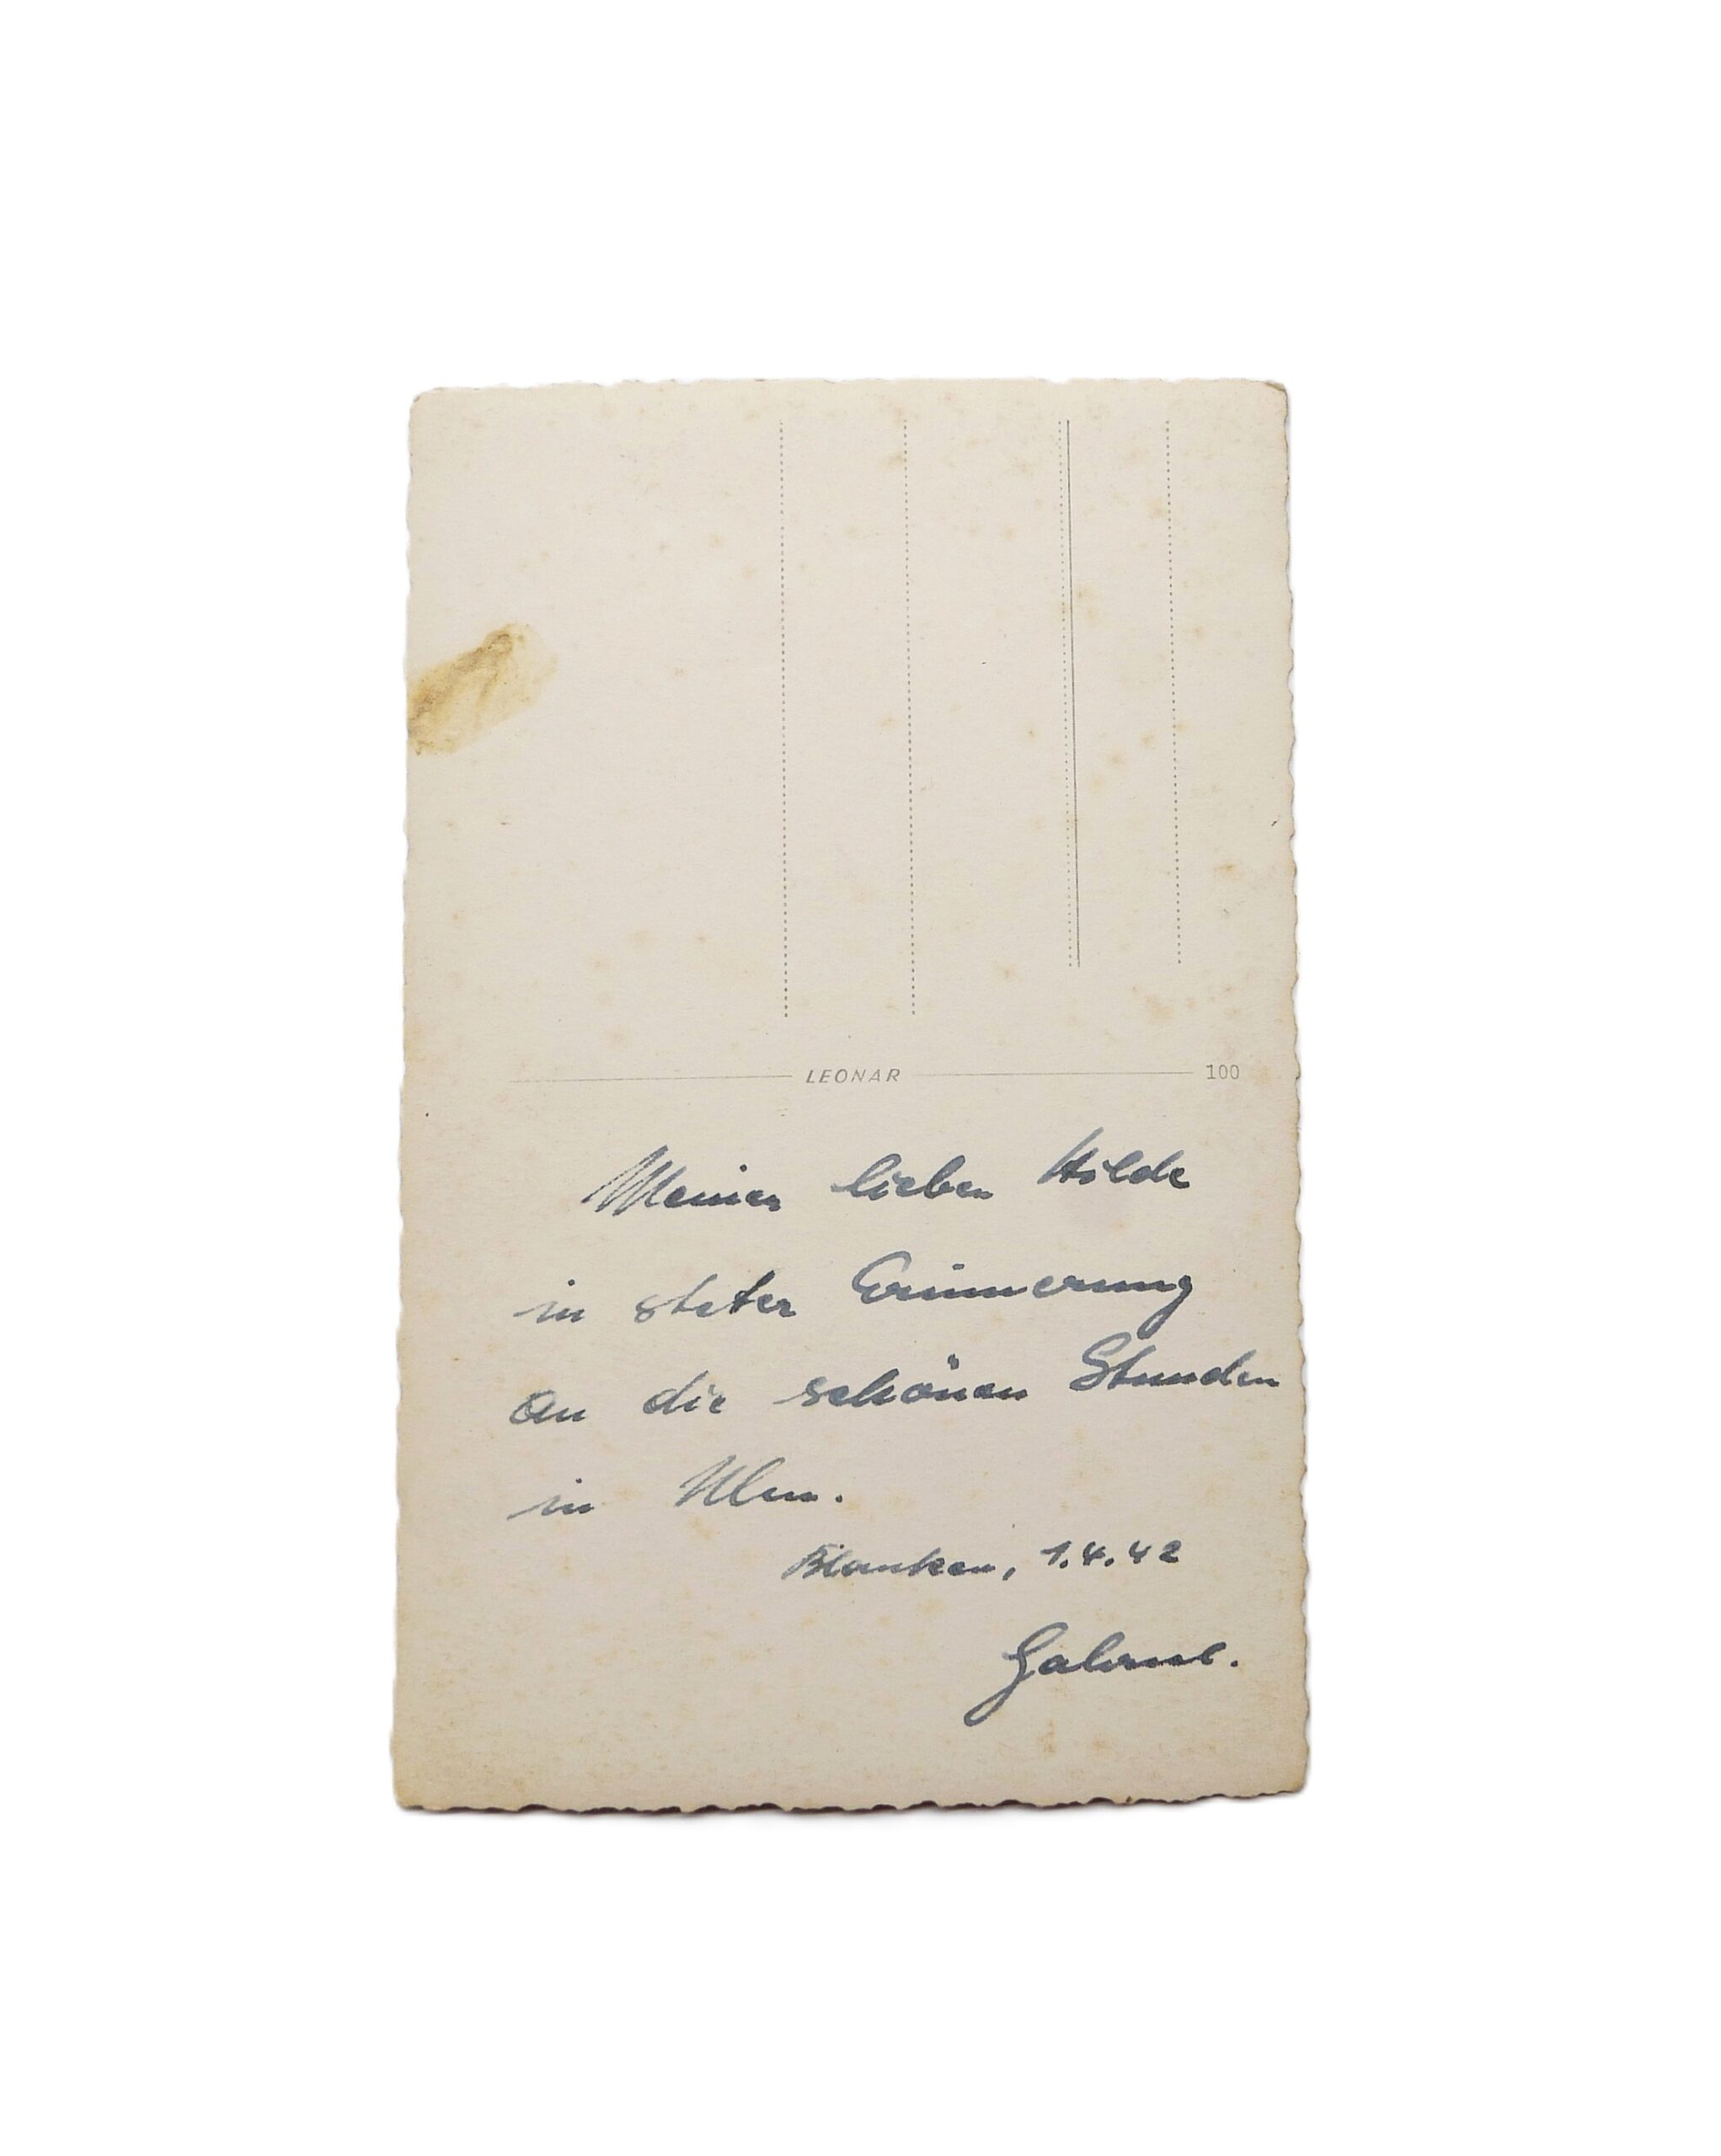 LEONAR 100
Meiner lieben Hilde
in steter Erinnerung
an die schönen Stunden
in Ulm.
1.4.42
Gabriel.